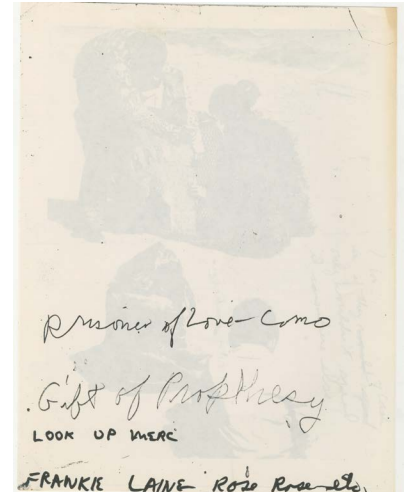 Prisoner of Love - Como
Gift of Propthesy
LOOK UP MERC
FRANKIE LAINE Rose Rose etc.